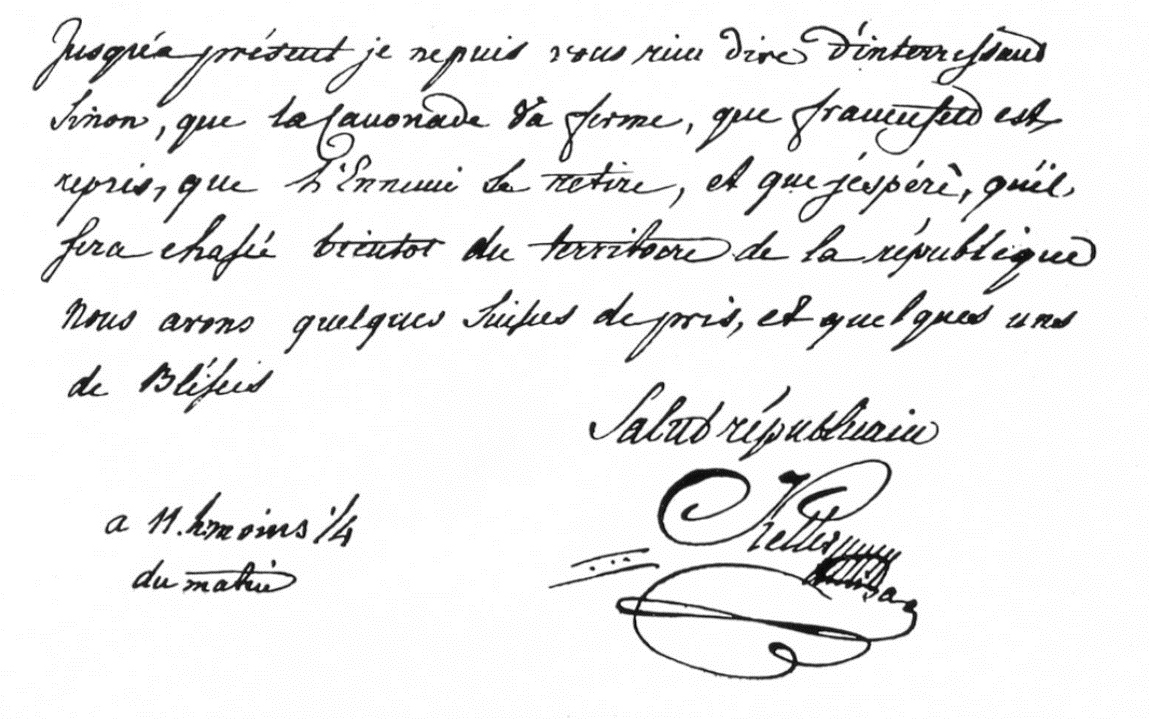 Jusqu'à présent je ne puis vous rien dire d'interressant
Sinon, que la Canonade va ferme, que frauenfeld est
repris, que l'Ennemi se retire, et que j'espéré, qu'il
sera chassé bientot du territoire de la république
Nous avons quelques Suisses de pris, et quelques uns
de Blésséis
Salut républicain
Keller
a 11. h. moins 1/4
du matin